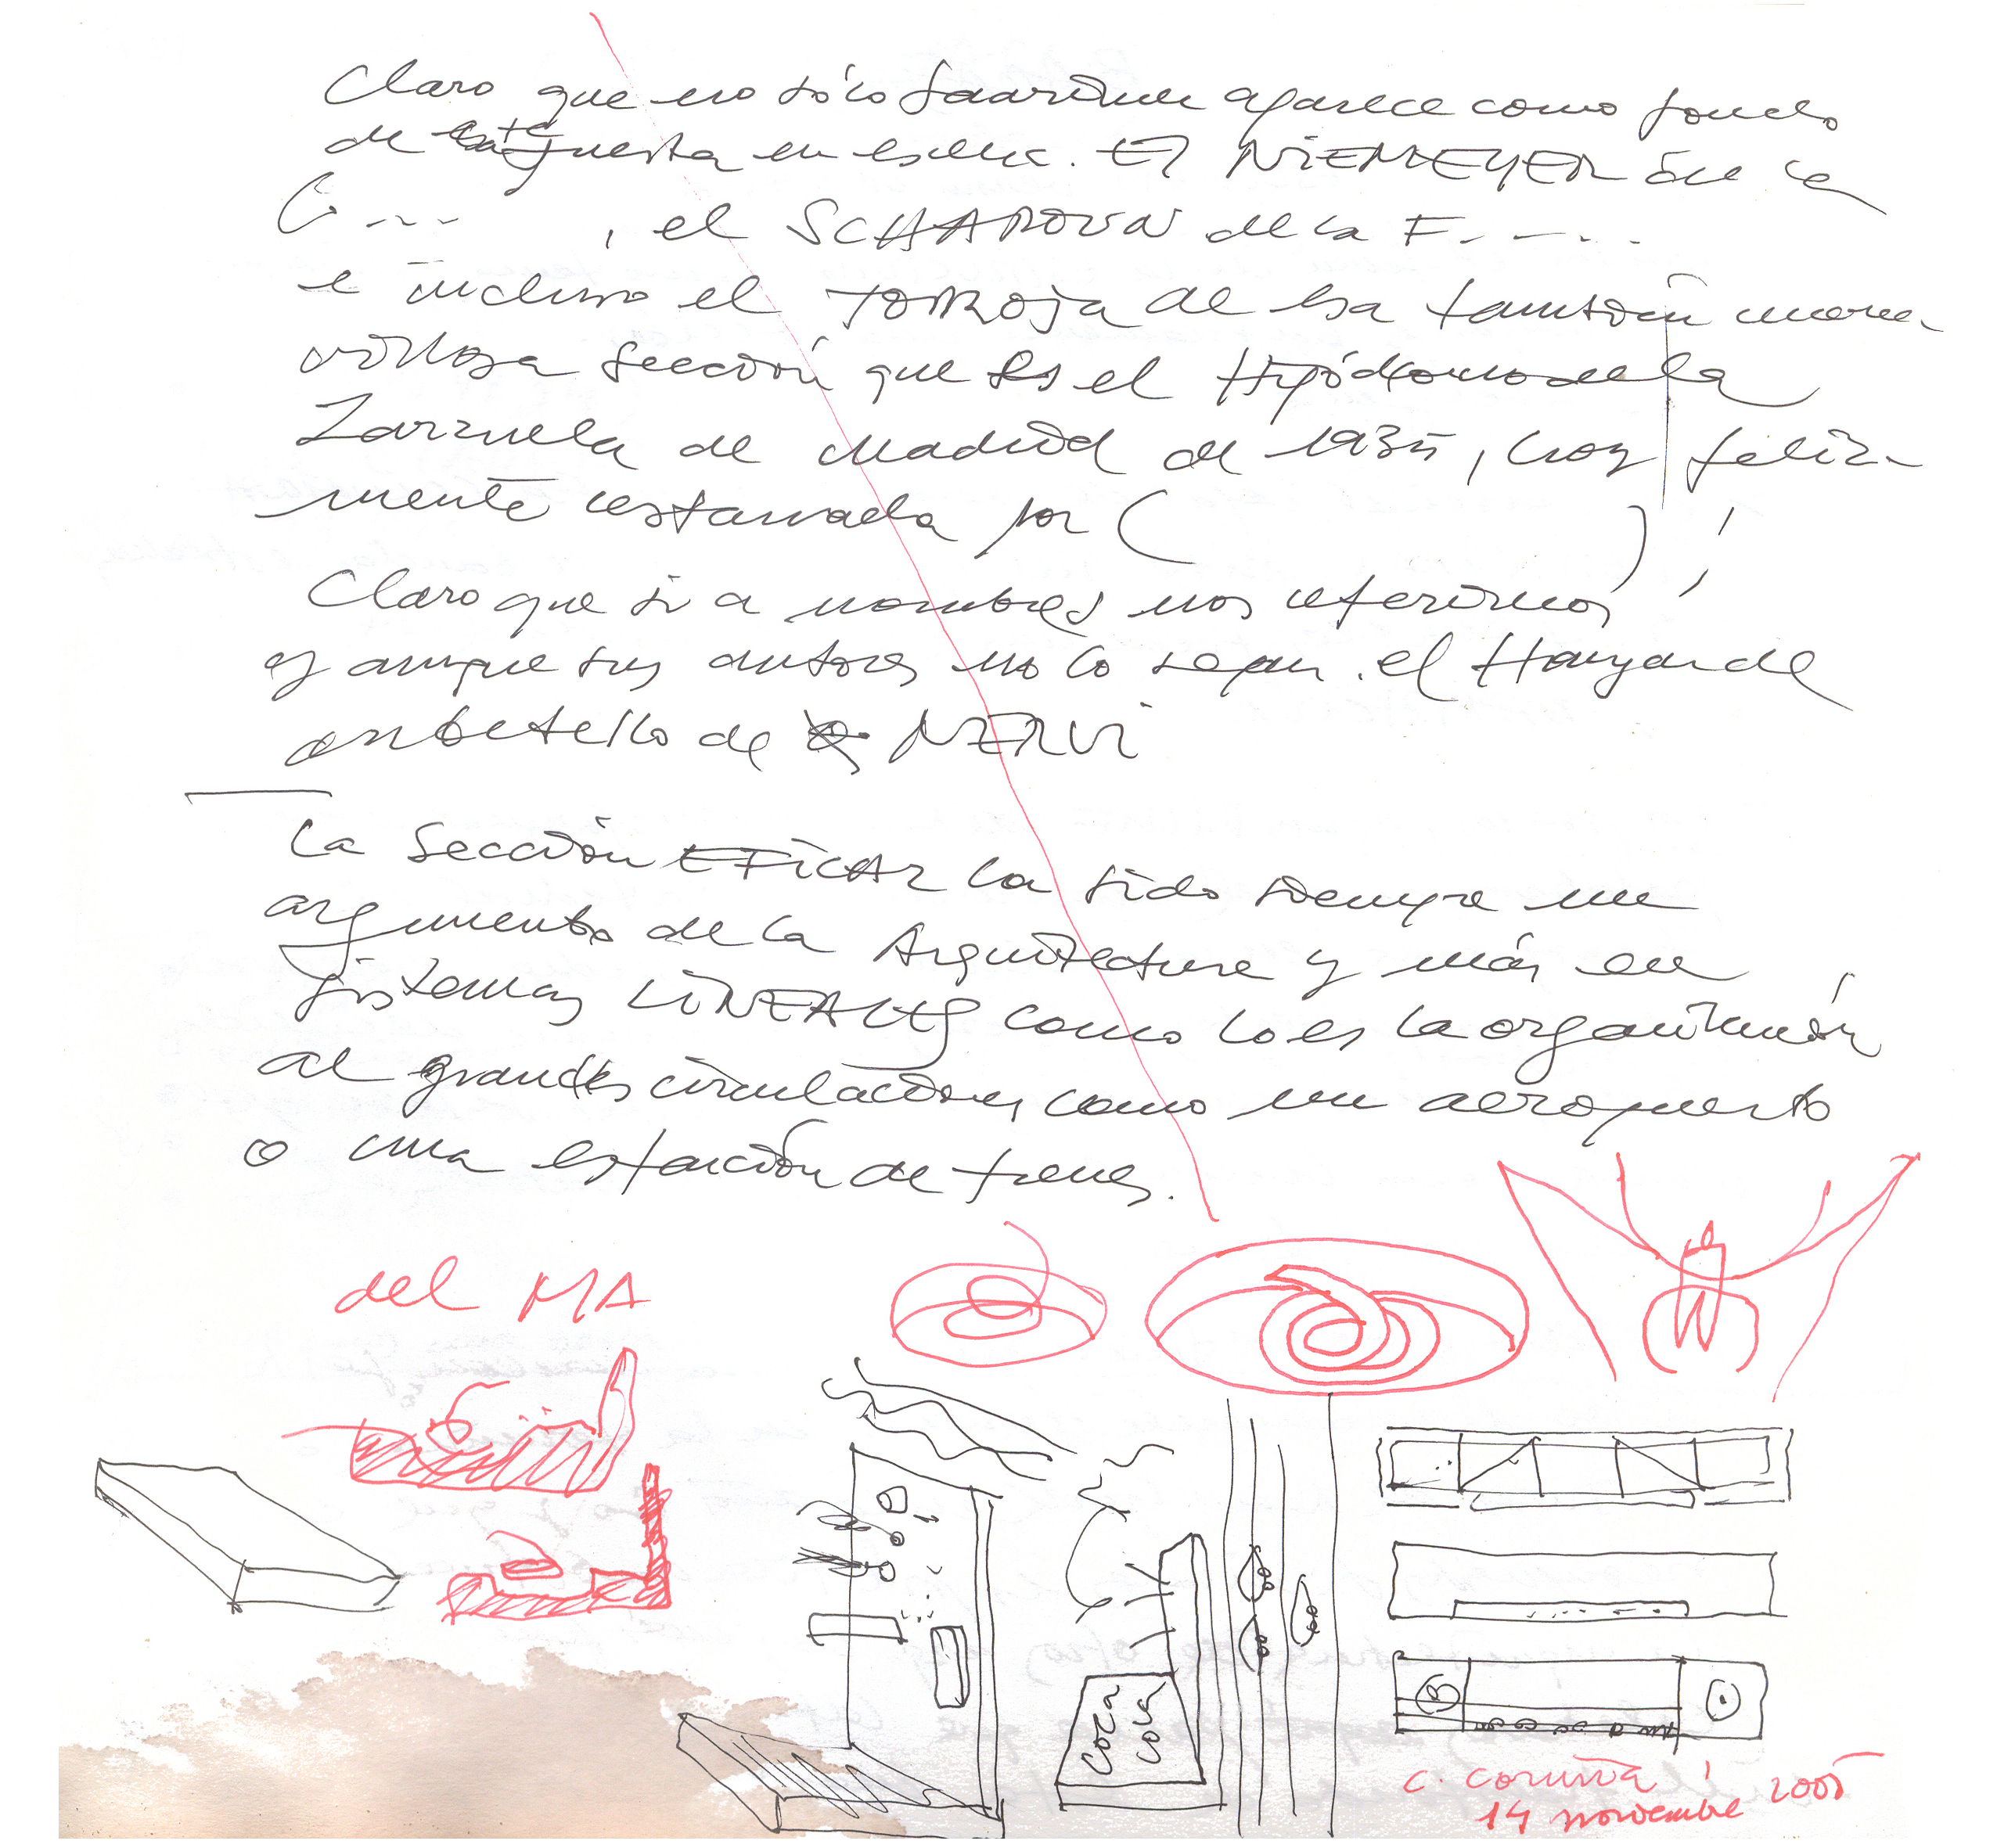 Claro que no sólo Saarinen aparece como fondo
de esta puesta en escena. El NIEMEYER de la
C... , el SCHAROUN de la F.....
e incluso el TORROJA de esa también mara
villosa sección que es el Hipódromo de la
Zarzuela de Madrid de 1935, hoy feliz-
mente restaurada por ( )
Claro que si a nombres nos referimos
y aunque sus autores no lo sepan. el Hangar de
Orbetello de NERVI
La Sección EFICAZ ha sido siempre un
argumento de la Arquitectura y más en
sistemas LINEALES como lo es la organización
de grandes circulaciones como un aeropuerto
o una estación de trenes.
del MA
COCA
COLA
B
C. Coruña
14 noviembre 2005